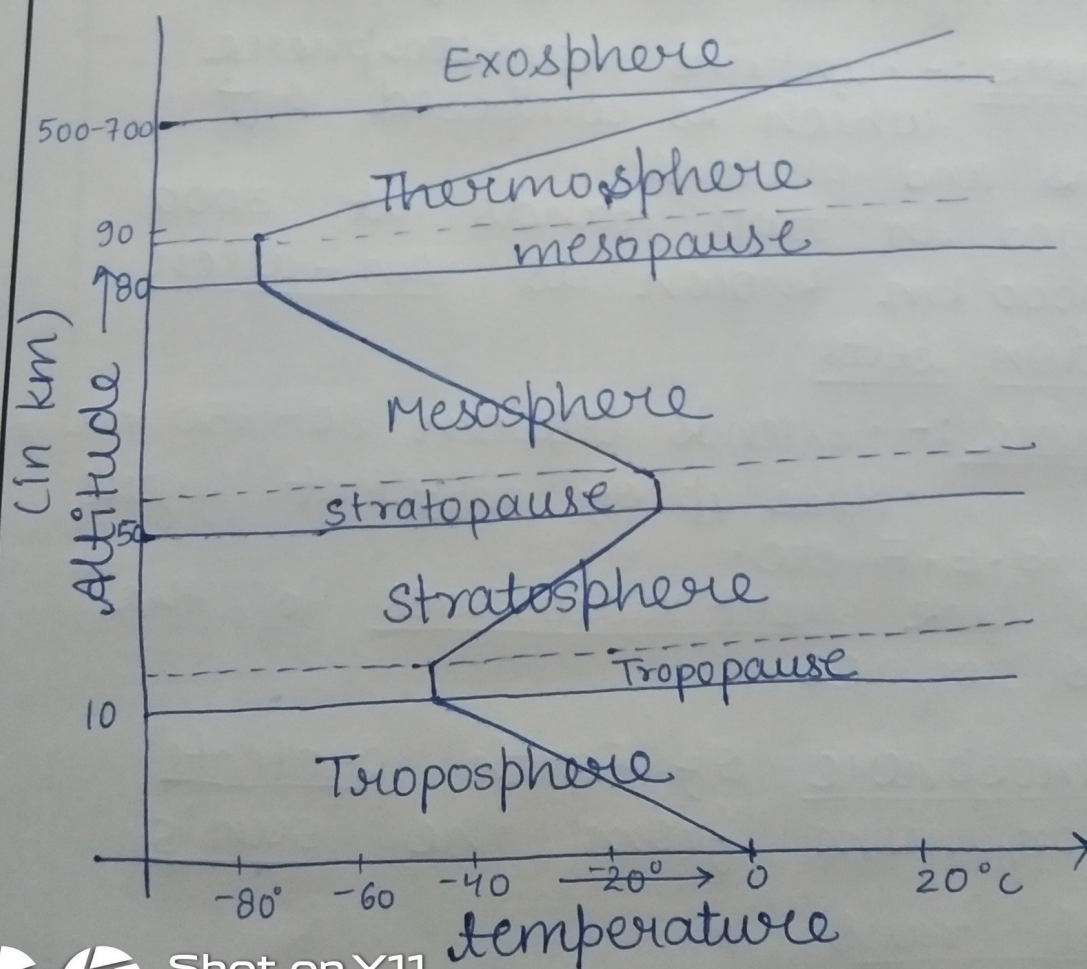 Exosphere
500-700
Thermosphere
90
mesopause
80
Mesosphere
stratopause
50
Stratosphere
Tropopause
10
Troposphere
Altitude →
(in km)
-80° -60 -40 -20° 0 20°C
temperature
Shot on Y11